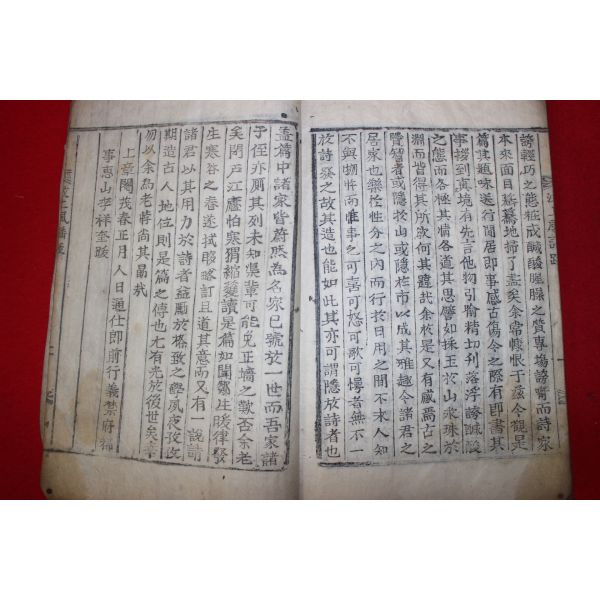 謗輕巧之態粧成鹹酸腥臊之質專塲謗嘼而詩家
本來面目紙幾地掃了盖矣余常慨恨于玆今觀是
篇其趣味送行閒居即事感古傷今之際有即書其
事接到眞境有先言他物引翰精切刋落浮謗鹹酸
之態而各極其情各道其思譬如採玉於山求珠於
淵而皆得其所欲何其韙哉余於是又有感焉古之
賢智者或隱於山或隱於市以成其雅趣今諸君之
居家也樂於性分之內而行於日用之間不求人知
不與物忤而惟事之可喜可怒可歌可愕者無不一
放詩發之故其造也能如此其亦可謂隱放詩者也
盖篇中諸家皆蔚然爲名家已號放一世而吾家諸
子侄亦厠其列未知渠輩可能免正墻之歎否余老
矣閉戶江廬怕寒猬縮矣讀是篇如開鄒生煖律發
生寒谷之春遂拭眵略訂且道其意而又有一說請
諸君以其用力於詩者益勵於格致之學夙夜孜孜
期造古人地位則是篇之傳也尤有光放後世矣幸
勿以余爲老誖尙其勗哉
上章閹茂春正月人日通仕郎前行義禁府都
事惠山李祥奎跋